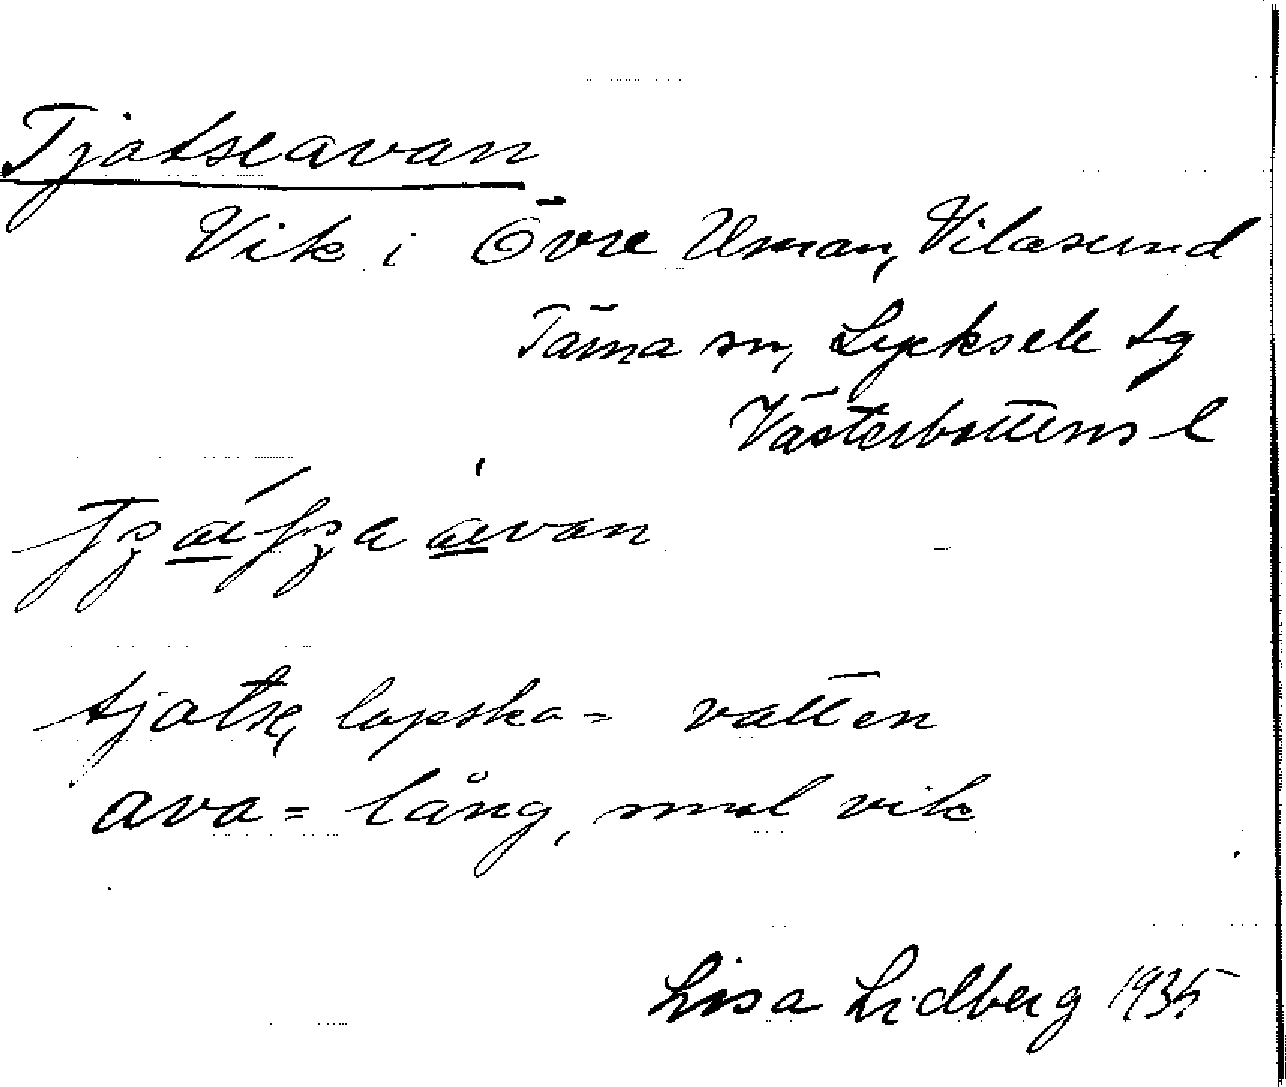 Tjatseavan
Vik i Övre Uman, Vilasund
Tärna sn, Lycksele tg
Västerbottens l
tjatse, lapska = vatten
ava = lång, smal vik
Lisa Lidberg 1935